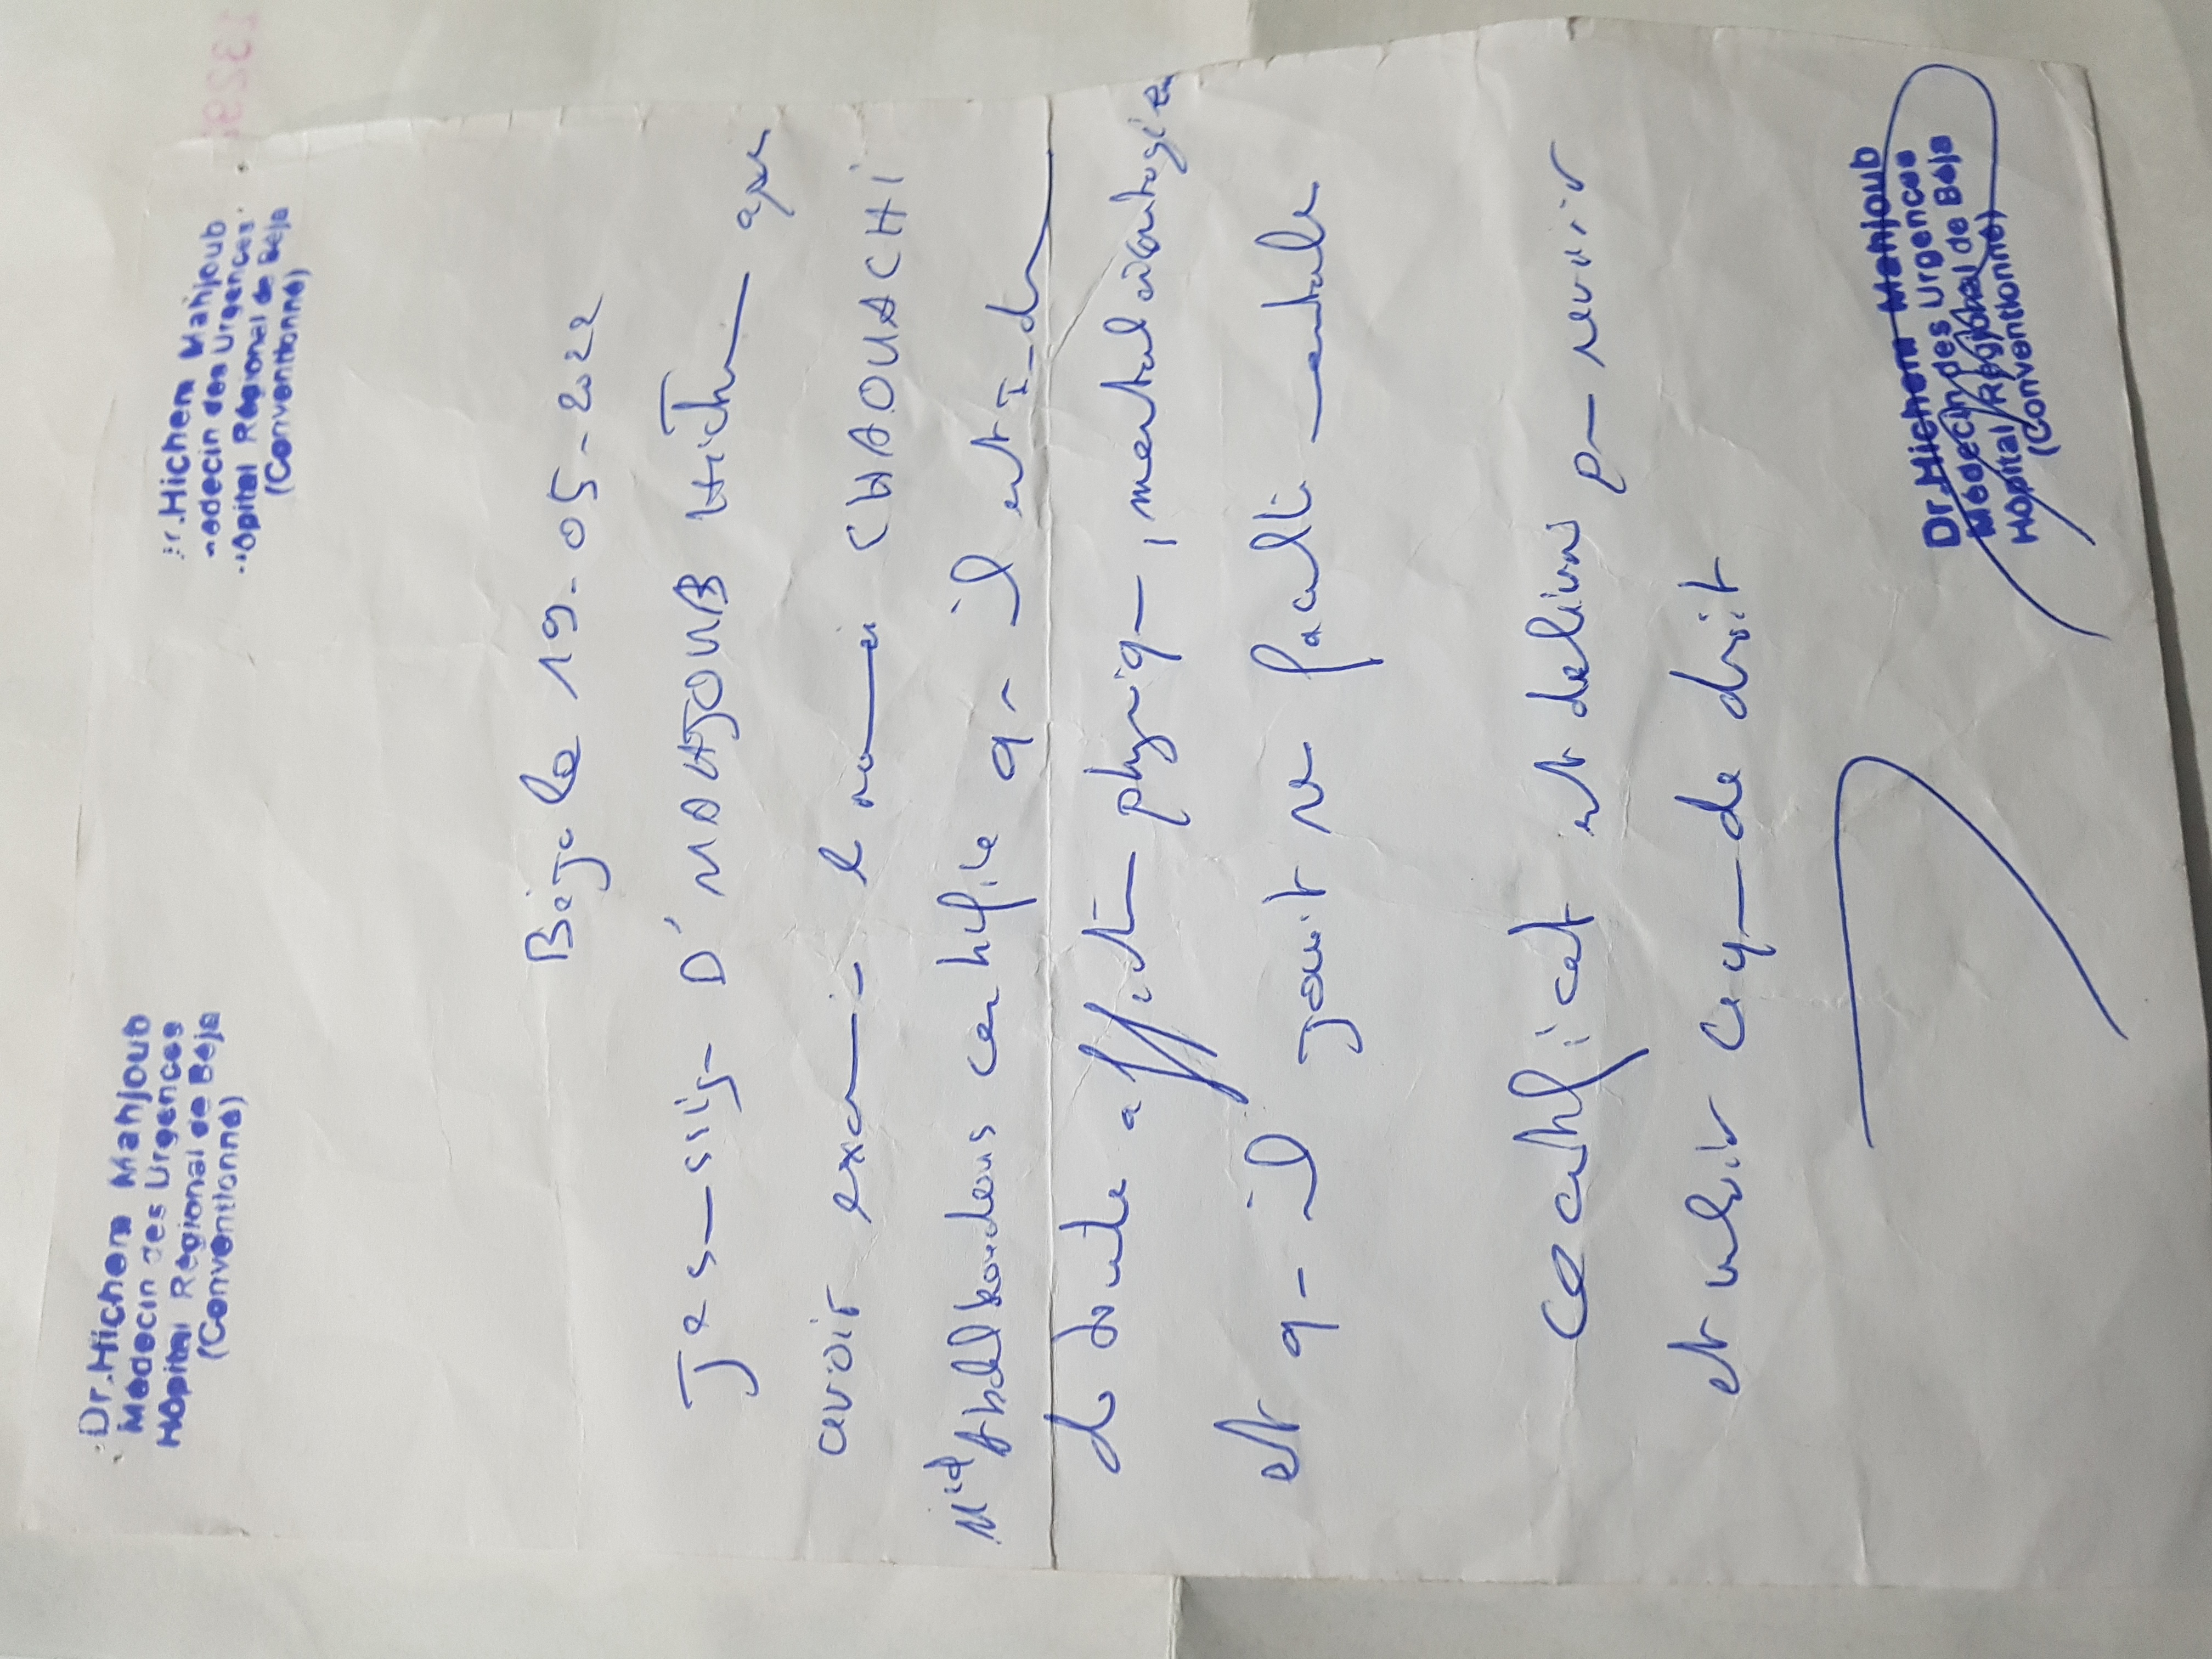 Dr. Hichem Mahjoub
Médecin des Urgences
Hôpital Régional de Béja
(Conventionné)
r. Hichem Mahjoub
edecin des Urgences
opital Régional de Béja
(Conventionné)
Béja le 19-05-2022
Je s-ssig- Dr MAHJOUB Hichem
avoir exami- l nommé CHAOUACHI
Med Abdelkouddous certifie q- il est I-d-
de toute affecti- physiq-, mental et contagieu
et q- il jouit se faculté mentale
Ce certificat est délivré p- servir
et valoir ce q- de droit
Dr. Hichem Mahjoub
Médecin des Urgences
Hôpital Régional de Béja
(Conventionné)